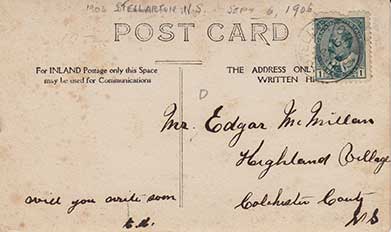 1906 STELLARTON N.S. - SEPT 6, 1906
POST CARD
For INLAND Postage only this Space
may be used for Communications
THE ADDRESS ONLY
WRITTEN
1 1
D
Mr. Edgar McMillan
Highland Village
Colchester County
N S
will you write soon